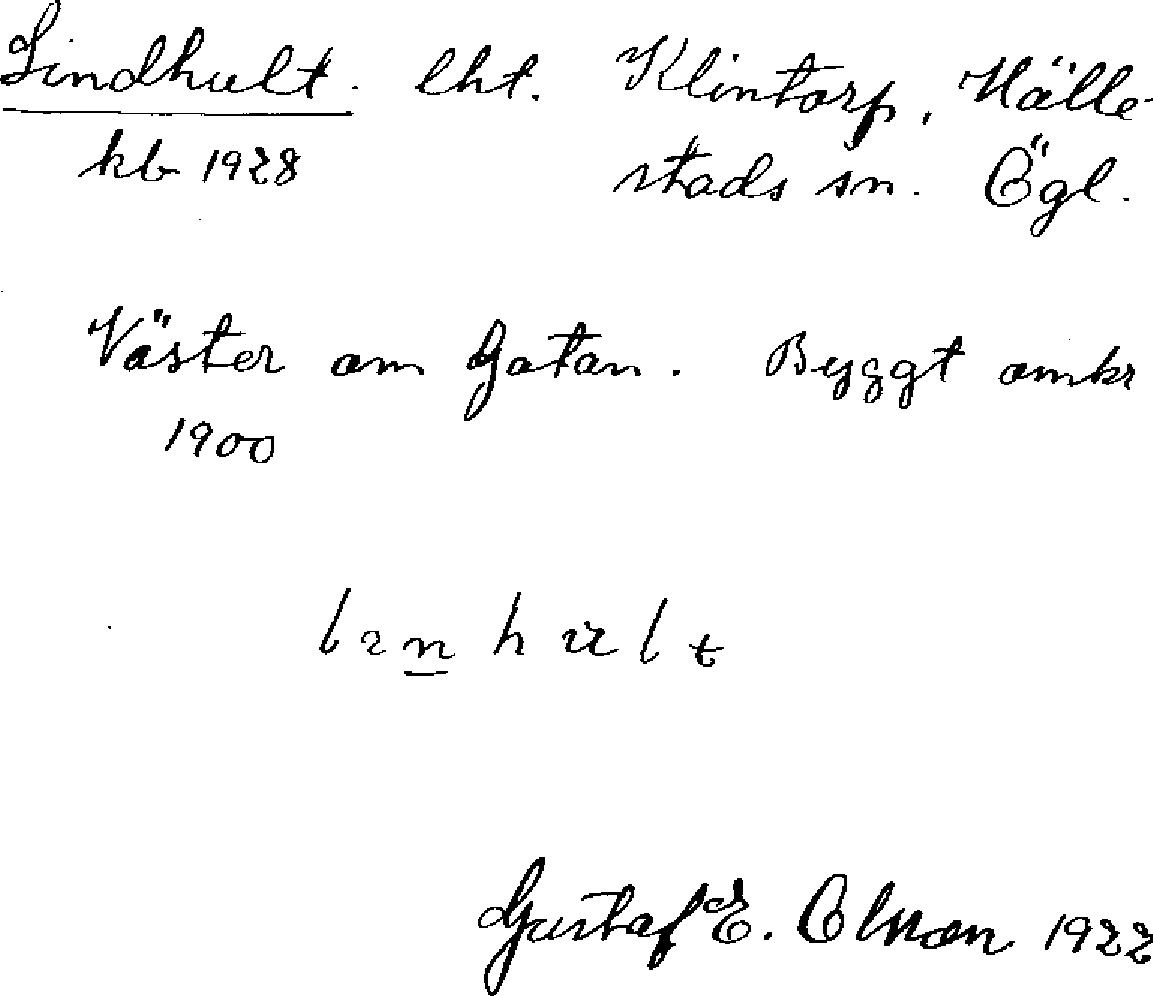 Lindhult. lht. Klintorp, Hälle-
kb 1928 stads sn. Ögl.
Väster om Gatan. Byggt omkr
1900
Gustaf E. Olsson 1922